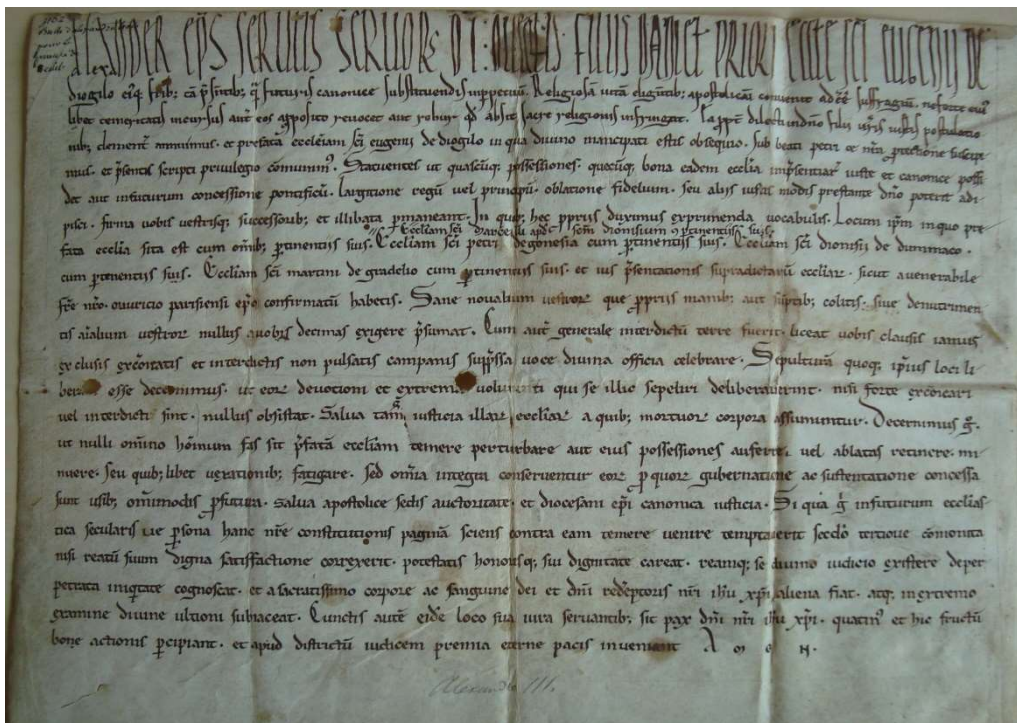 Alexander
ALEXANDER EPS SERUUS SERUOR DI. DILECTIS FILIIS DANIELI PRIORI ECCLE SCI EUGENII DE
diogilo eiq; frib; tā p̄sentib; qͣ futuris canonice substituendis imppetuū. Religiosā uitā eligentib; apostolicū conuenit adēē suffragiū. ne forte cuius
libet temeritatis incursus aut eos a pposito reuocet aut robur qd absit sacre religionis infringat. Ea ppt dilecti in dn̄o filii ur̄is iustis postulatio
nib; clement̄ annuimus. et prefatā eccl̄eiam sc̄i eugenii de diogilo in qua diuino mancipati estis obsequio. sub beati petri et nr̄a ptectione suscipi
mus. et p̄sentis scripti priuilegio cōmunim᾽. Statuentes ut quascūq; possessiones. quecūq; bona eadem ecclīa imp̄sentiar̄ iuste et canonice possi
det aut infuturum concessione pontificū. largitione regū uel principū. oblatione fidelium. seu aliis iustis modis prestante dn̄o poterit adi
pisci. firma uobis uestrisq; successorib; et illibata pmaneant. In quib; hec ppriis duximus exprimenda uocabulis. Locum ipm̄ in quo pre
fata ecclīa sita est cum om̄ib; ptinentiis suis. Ecclīam sc̄i petri de gonesia cum ptinentiis suis. Ecclīam sc̄i dionisii de dunimaco.
cum ptinentiis suis. Ecclīam sc̄i martini de gradelio cum ptinentiis suis. et ius p̄sentationis supradictarū eccl̄iar̄. sicut a uenerabile
fr̄e nr̄o. Mauricio parisiensi ep̄o confirmatū habetis. Sane noualium uestror̄ que ppriis manib; aut sūptib; colitis. siue de nutrimen
tis aīalium uestror̄ nullus a uobis decimas exigere p̄sumat. Cum aut̄ generale interdictū terre fuerit. liceat uobis clausis ianuis
exclusis exc̄oicatis et interdictis non pulsatis campanis supp̄ssa uoce diuina officia celebrare. Sepulturā quoq; ipsius loci li
berā esse decernimus. ut eor̄ deuotioni et extreme uoluntati qui se illic sepeliri deliberauerint. nisi forte exc̄oicati
uel interdicti sint. nullus obsistat. Salua tam̄ iusticia illar̄ eccl̄iar̄ a quib; mortuor̄ corpora assumuntur. Decernimus g̊.
ut nulli om̄ino hom̄inum fas sit p̄fatā eccl̄iam temere perturbare aut eius possessiones auferre. uel ablatas retinere. mi
nuere. seu quib;libet uexationib; fatigare. Sed om̄ia integra conseruentur eor̄ p quor̄ gubernatione ac sustentatione concessa
sunt usib; om̄imodis pfutura. Salua apostolice sedis auctoritate. et diocesani ep̄i canonica iusticia. Si qua g̊ infuturum ecclias
tica secularis ue psona hanc nr̄e constitutionis paginā sciens contra eam temere uenire temptauerit sec̄do tercioue cōmonita
nisi reatū suum digna satisfactione correxerit. potestatis honorisq; sui dignitate careat. reamq; se diuino iudicio existere de per
petrata iniq̇tate cognoscat. et a sacratissimo corpore ac sanguine dei et dn̄i redēptoris nr̄i ih̄u xp̄i aliena fiat. atq; in extremo
examine diuine ultioni subiaceat. Cunctis autē eidē loco sua iura seruantib; sit pax dn̄i nr̄i ih̄u xp̄i. quatin᾽ et hic fructū
bone actionis percipiant. et apud districtū iudicem premia eterne pacis inueniant A M E N.
Alexandre III.